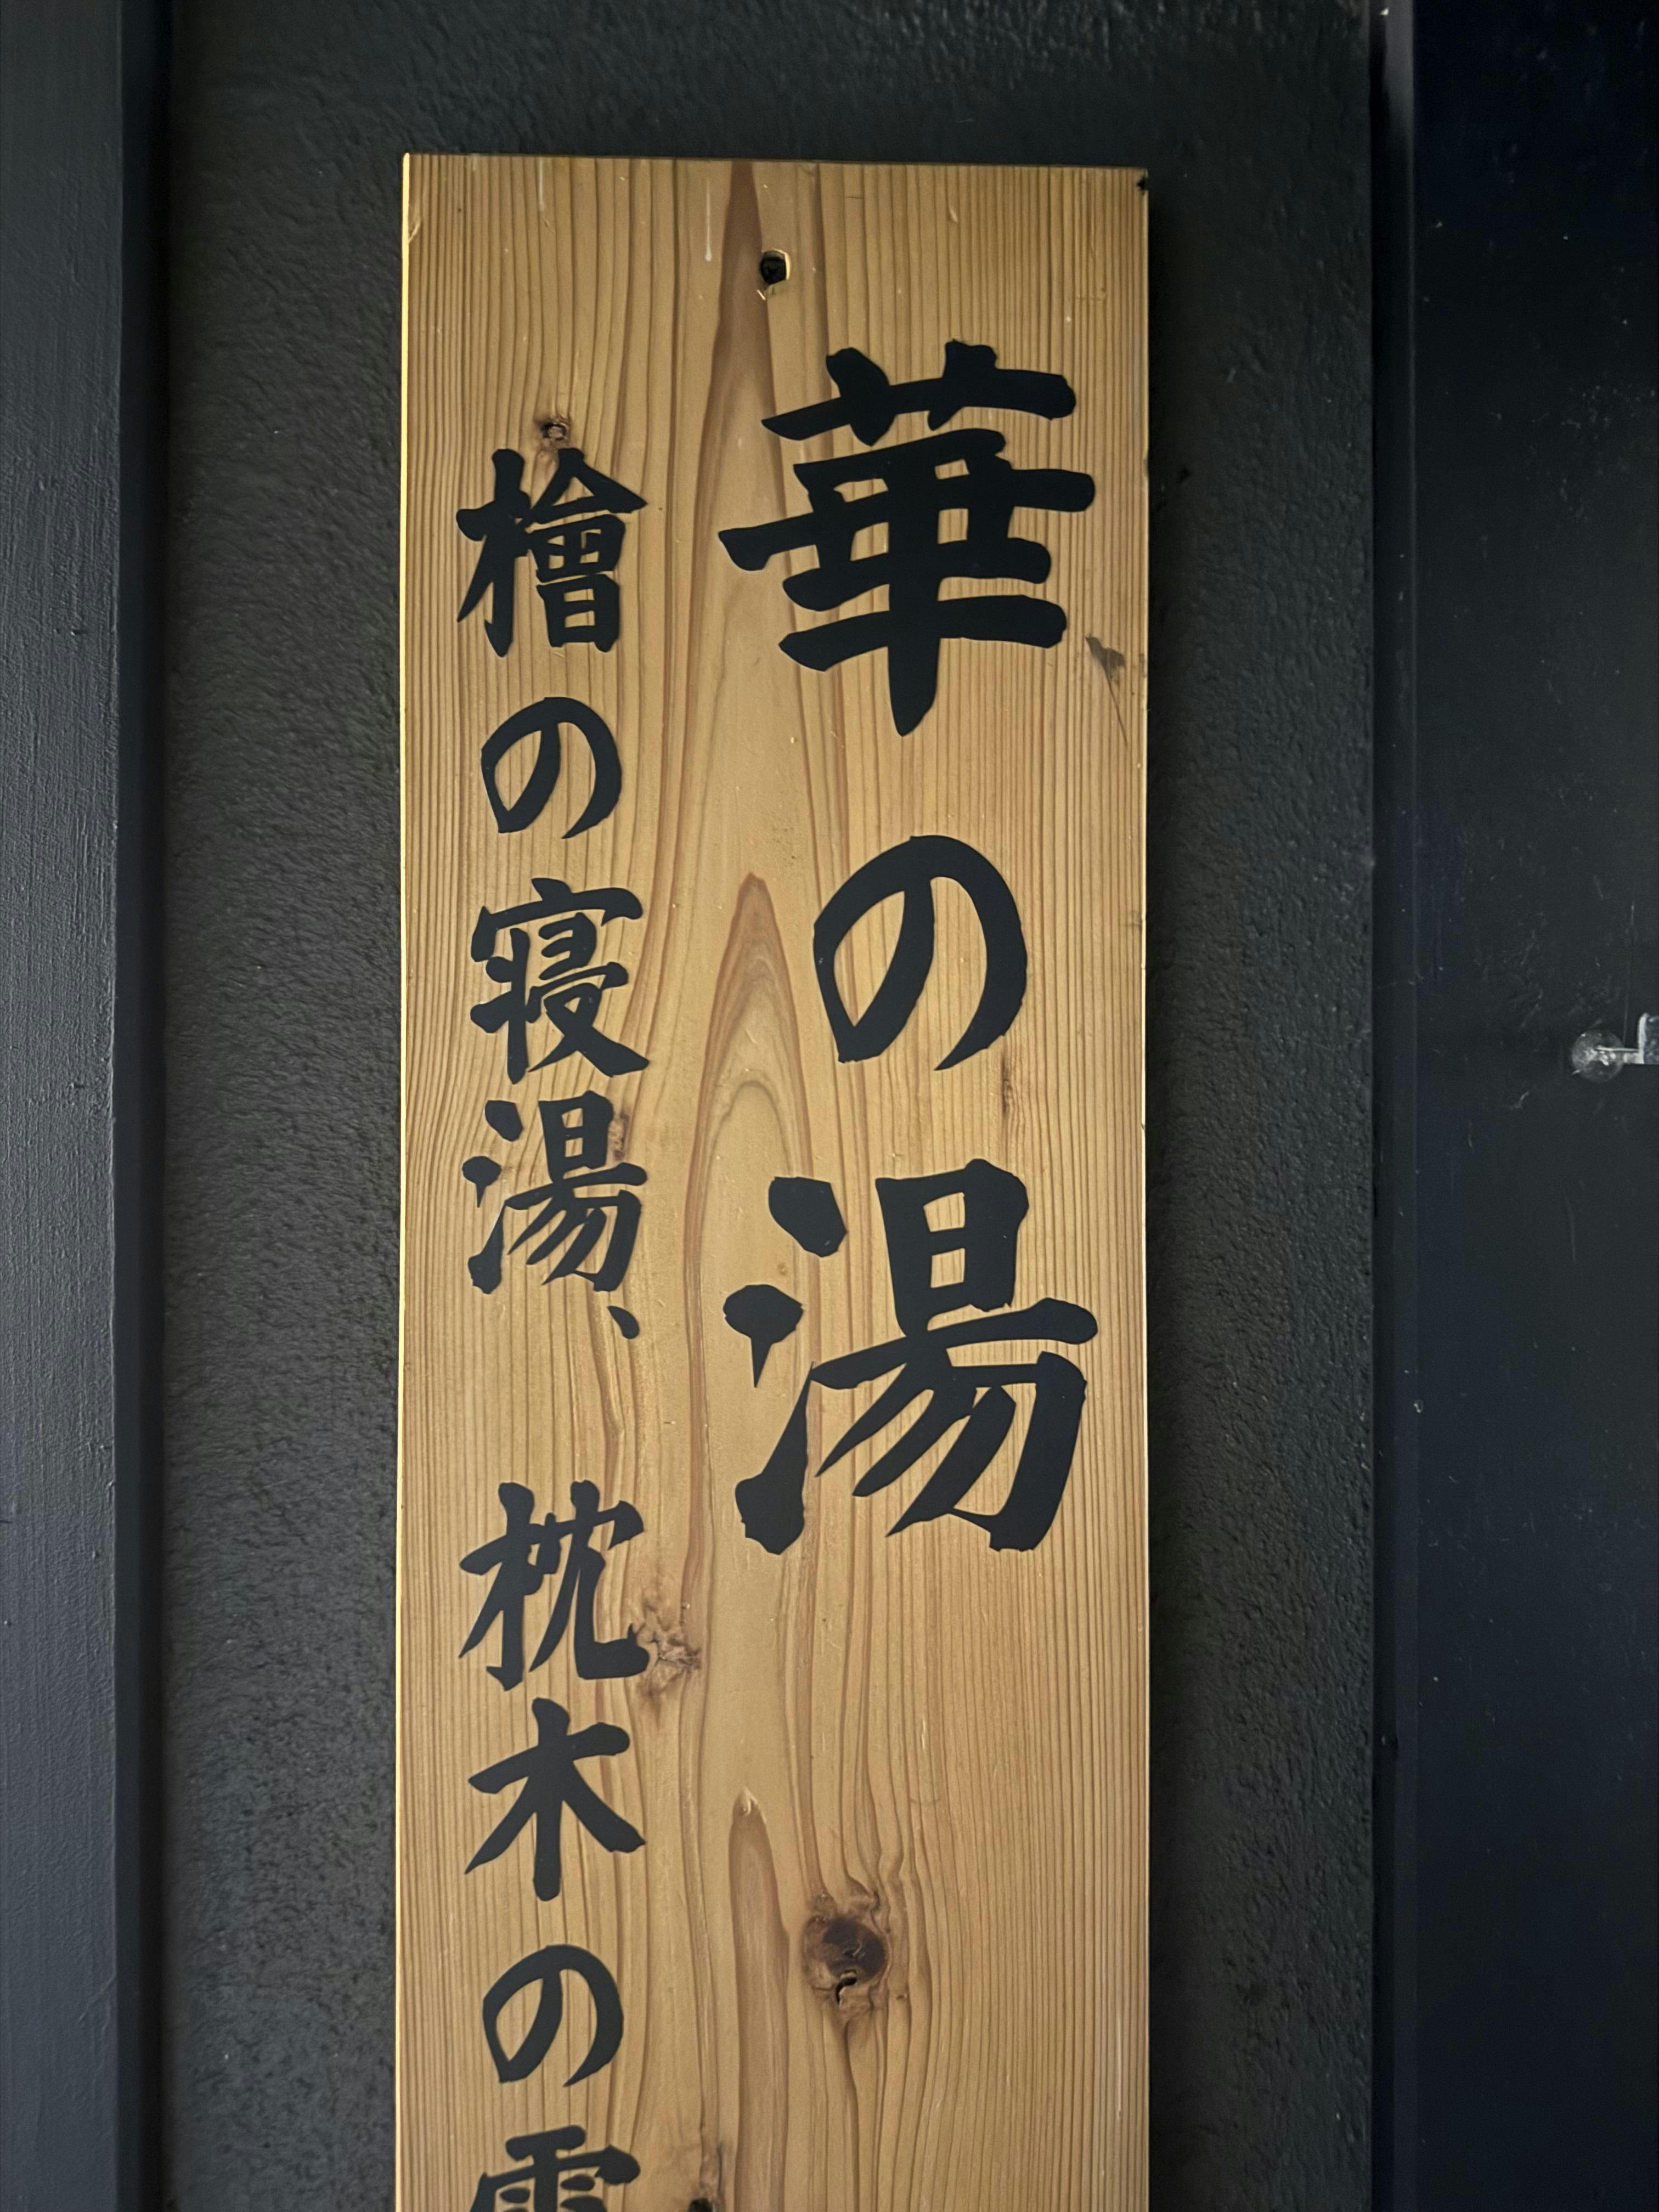 華の湯
檜の寝湯、枕木の